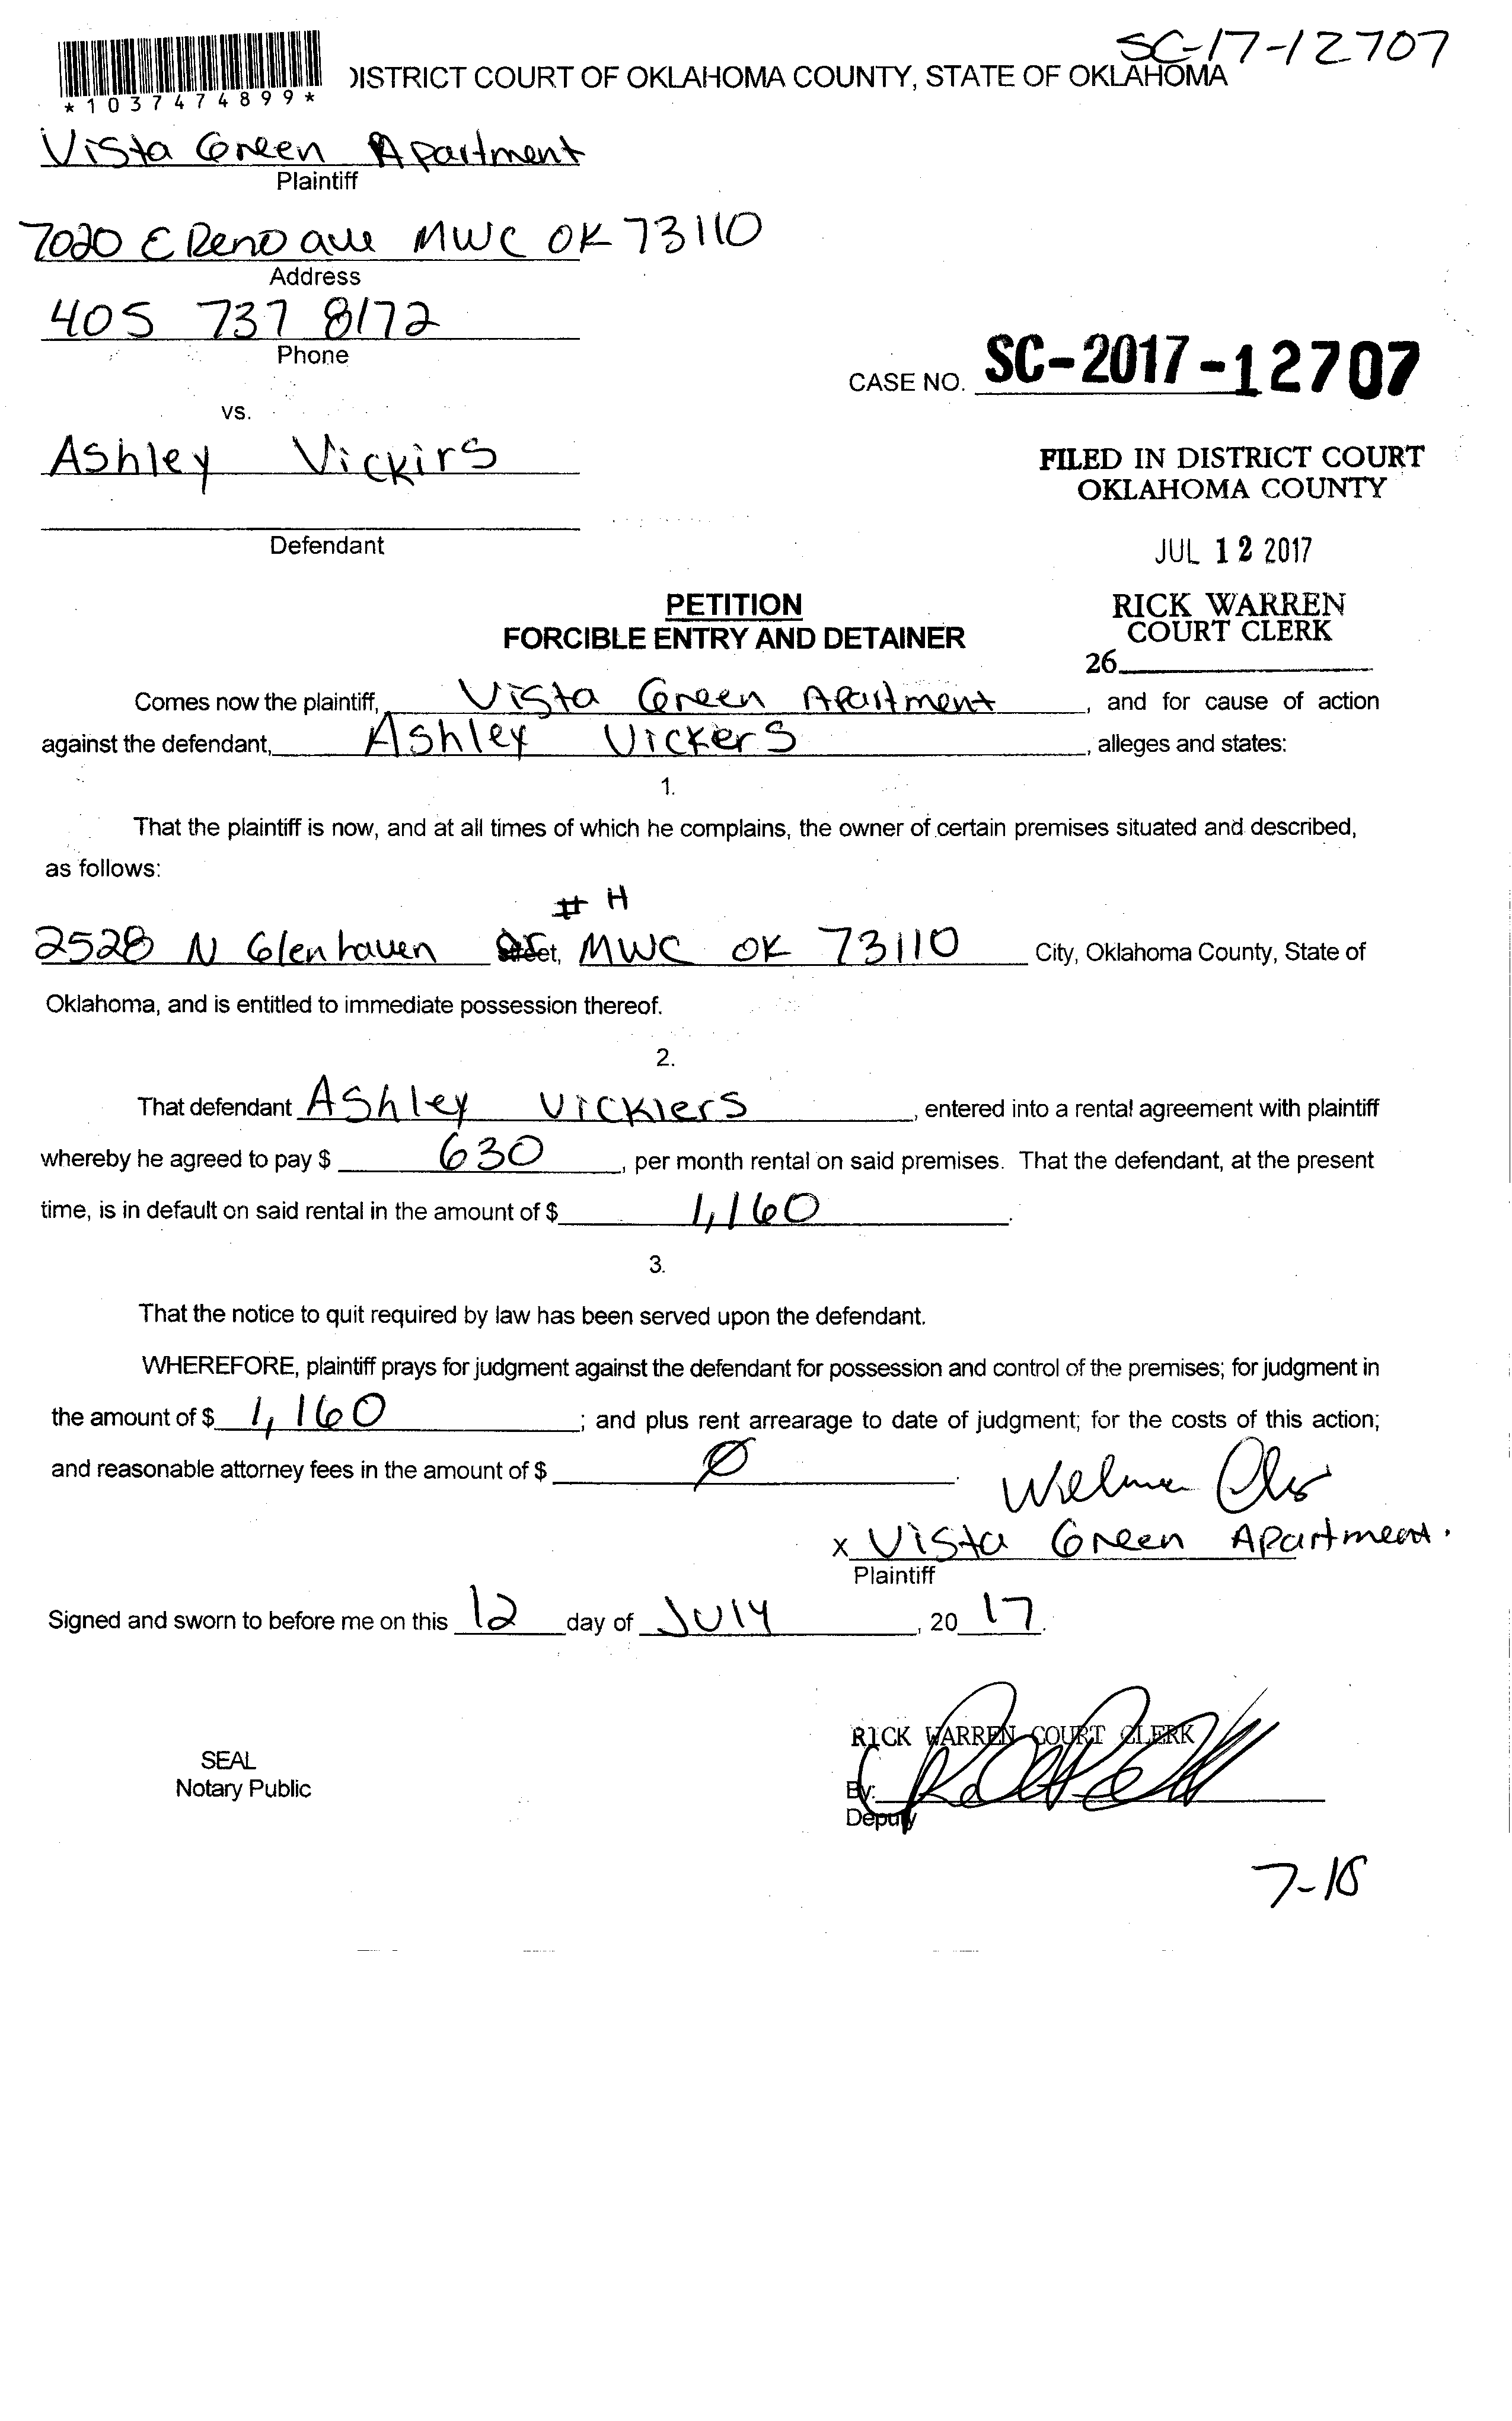 SC-17-12707
*1037474899*
DISTRICT COURT OF OKLAHOMA COUNTY, STATE OF OKLAHOMA
Vista Green Apartment
Plaintiff
7020 E Reno ave MWC OK 73110
Address
405 737 8172
Phone
CASE NO. SC-2017-12707
vs.
Ashley Vickirs
FILED IN DISTRICT COURT
OKLAHOMA COUNTY
Defendant
JUL 12 2017
PETITION
FORCIBLE ENTRY AND DETAINER
RICK WARREN
COURT CLERK
26
Comes now the plaintiff, Vista Green Apartment, and for cause of action
against the defendant, Ashley Vickers, alleges and states:
1.
That the plaintiff is now, and at all times of which he complains, the owner of certain premises situated and described,
as follows:
# H
2528 N Glenhaven Street, MWC OK 73110 City, Oklahoma County, State of
Oklahoma, and is entitled to immediate possession thereof.
2.
That defendant Ashley Vickiers, entered into a rental agreement with plaintiff
whereby he agreed to pay $ 630, per month rental on said premises. That the defendant, at the present
time, is in default on said rental in the amount of $ 1,160.
3.
That the notice to quit required by law has been served upon the defendant.
WHEREFORE, plaintiff prays for judgment against the defendant for possession and control of the premises; for judgment in
the amount of $ 1,160; and plus rent arrearage to date of judgment; for the costs of this action;
and reasonable attorney fees in the amount of $ Ø.
x Vista Green Apartment.
Plaintiff
Signed and sworn to before me on this 12 day of July, 2017.
RICK WARREN COURT CLERK
SEAL
Notary Public
By:
Deputy
7-18